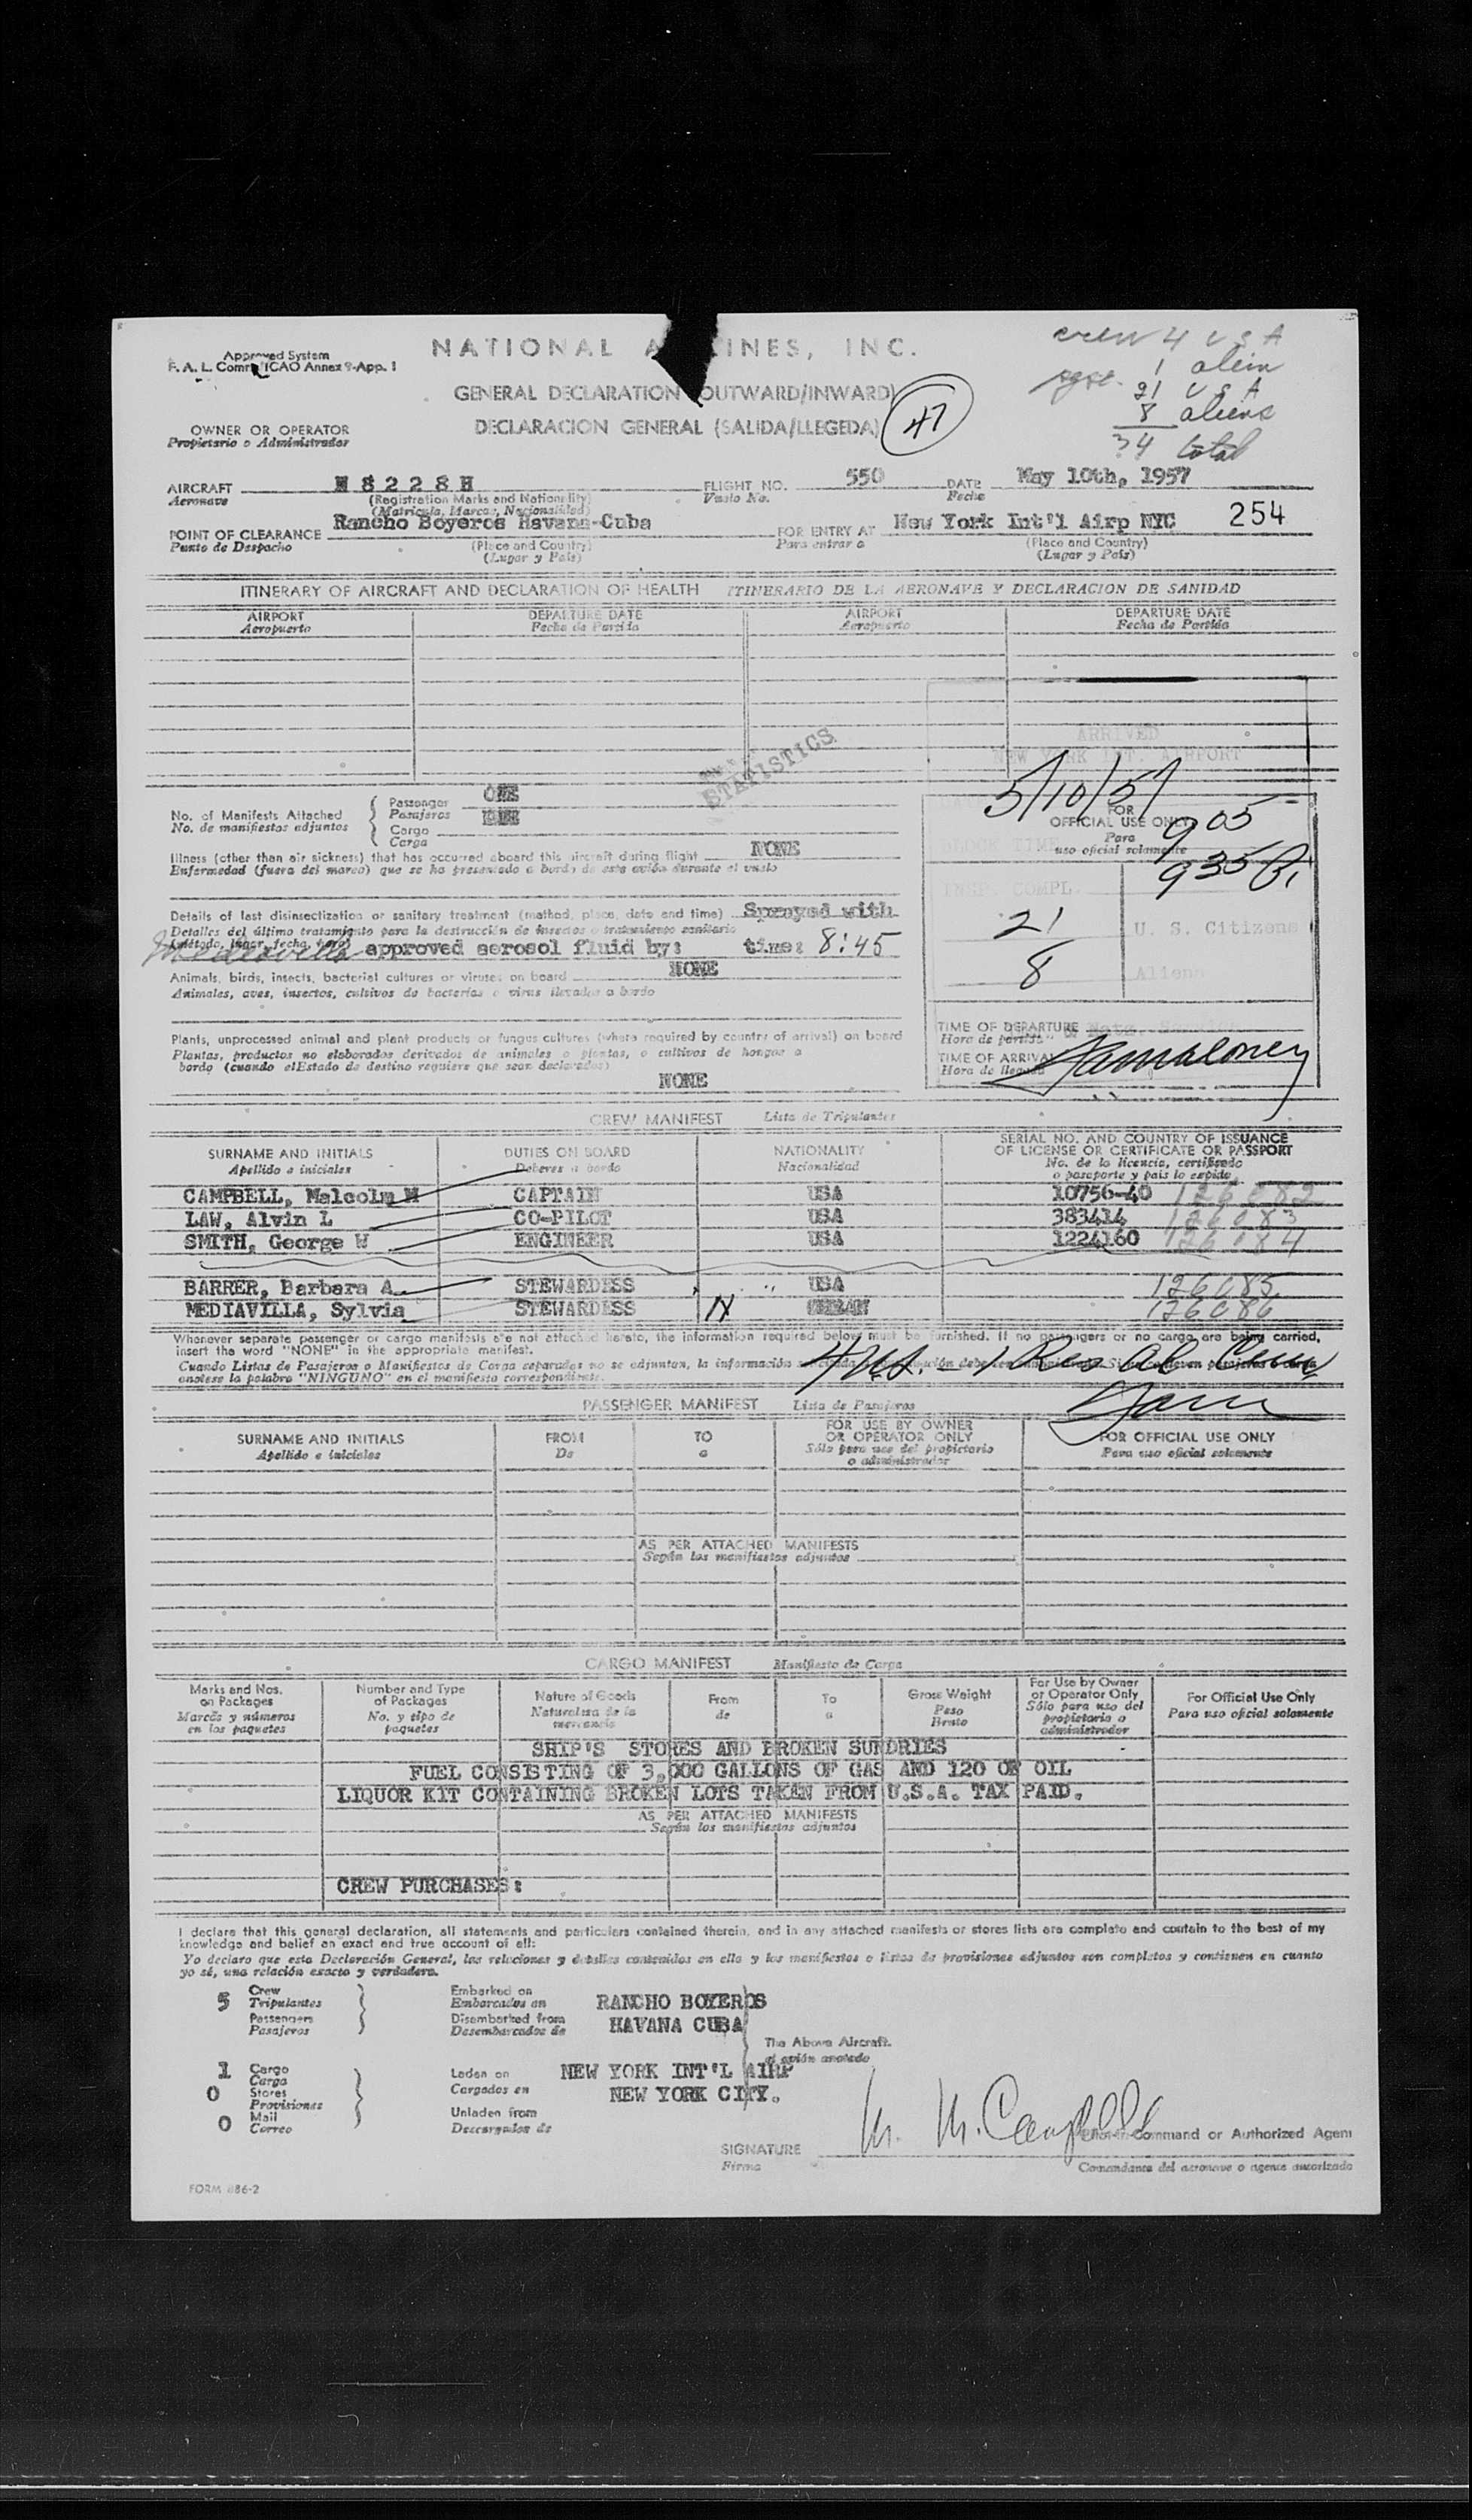 Approved System
F. A. L. Comm ICAO Annex 9-App. 1
NATIONAL A INES, INC.
GENERAL DECLARATION (OUTWARD/INWARD)
DECLARACION GENERAL (SALIDA/LLEGEDA)
47
crew 4 USA
1 alein
21 USA
8 aliens
34 total
OWNER OR OPERATOR
Propietario o Administrador
AIRCRAFT N 8 2 2 8 H FLIGHT NO. 550 DATE May 10th, 1957
Aeronave (Registration Marks and Nationality) Vuelo No. Fecha
(Matricula, Marcas, Nacionalidad)
POINT OF CLEARANCE Rancho Boyeros Havana-Cuba FOR ENTRY AT New York Int'l Airp NYC 254
Punto de Despacho (Place and Country) Para entrar a (Place and Country)
(Lugar y País) (Lugar y País)
ITINERARY OF AIRCRAFT AND DECLARATION OF HEALTH ITINERARIO DE LA AERONAVE Y DECLARACION DE SANIDAD
AIRPORT DEPARTURE DATE AIRPORT DEPARTURE DATE
Aeropuerto Fecha de Partida Aeropuerto Fecha de Partida
STATISTICS
ARRIVED
NEW YORK INT. AIRPORT
5/10/57
FOR
OFFICIAL USE ONLY
Para
uso oficial solamente
BLOCK TIME
905
935
INSP. COMPL.
21 U. S. Citizens
8 Aliens
No. of Manifests Attached Passenger ONE
No. de manifiestos adjuntos Pasajeros
Cargo
Carga
Illness (other than air sickness) that has occurred aboard this aircraft during flight NONE
Enfermedad (fuera del mareo) que se ha presentado a bordo de este avión durante el vuelo
Details of last disinsectization or sanitary treatment (method, place, date and time) Sprayed with
Detalles del último tratamiento para la destrucción de insectos o tratamiento sanitario
(Método, lugar, fecha, hora)
Mediavilla approved aerosol fluid by: time: 8:45
Animals, birds, insects, bacterial cultures or viruses on board NONE
Animales, aves, insectos, cultivos de bacterias o virus llevados a bordo
Plants, unprocessed animal and plant products or fungus cultures (where required by country of arrival) on board
Plantas, productos no elaborados derivados de animales o plantas, o cultivos de hongos a
bordo (cuando el Estado de destino requiere que sean declarados)
NONE
TIME OF DEPARTURE
Hora de partida
TIME OF ARRIVAL
Hora de llegada
CREW MANIFEST Lista de Tripulantes
SURNAME AND INITIALS DUTIES ON BOARD NATIONALITY SERIAL NO. AND COUNTRY OF ISSUANCE
OF LICENSE OR CERTIFICATE OR PASSPORT
Apellido e iniciales Deberes a bordo Nacionalidad No. de la licencia, certificado
o pasaporte y pais lo expide
CAMPBELL, Malcolm M CAPTAIN USA 10756-40 126082
LAW, Alvin L CO-PILOT USA 383414 126083
SMITH, George W ENGINEER USA 1224160 126084
BARRER, Barbara A. STEWARDESS USA 126085
MEDIAVILLA, Sylvia STEWARDESS CUBAN 126086
Whenever separate passenger or cargo manifests are not attached hereto, the information required below must be furnished. If no passengers or no cargo are being carried,
insert the word "NONE" in the appropriate manifest.
Cuando Listas de Pasajeros o Manifiestos de Carga separados no se adjuntan, la información
anotese la palabra "NINGUNO" en el manifiesto correspondiente.
4 U.S. - 1 Res Al. Crew
PASSENGER MANIFEST Lista de Pasajeros
SURNAME AND INITIALS FROM TO FOR USE BY OWNER OR OPERATOR ONLY FOR OFFICIAL USE ONLY
Apellido e iniciales De a Sólo para uso del propietario o administrador Para uso oficial solamente
AS PER ATTACHED MANIFESTS
Según los manifiestos adjuntos
CARGO MANIFEST Manifiesto de Carga
Marks and Nos. on Packages Number and Type of Packages Nature of Goods From To Gross Weight For Use by Owner or Operator Only For Official Use Only
Marcas y números en los paquetes No. y tipo de paquetes Naturaleza de la mercancia de a Peso Bruto Sólo para uso del propietario o administrador Para uso oficial solamente
SHIP'S STORES AND BROKEN SUNDRIES
FUEL CONSISTING OF 3,000 GALLONS OF GAS AND 120 OF OIL
LIQUOR KIT CONTAINING BROKEN LOTS TAKEN FROM U.S.A. TAX PAID.
AS PER ATTACHED MANIFESTS
Según los manifiestos adjuntos
CREW PURCHASES:
I declare that this general declaration, all statements and particulars contained therein, and in any attached manifests or stores lists are complete and contain to the best of my
knowledge and belief an exact and true account of all:
Yo declaro que esta Declaración General, las relaciones y detalles contenidos en ella y los manifiestos o listas de provisiones adjuntos son completos y contienen en cuanto
yo sé, una relación exacta y verdadera.
5 Crew Embarked on RANCHO BOYEROS
Tripulantes Embarcados en
Passengers Disembarked from HAVANA CUBA
Pasajeros Desembarcados de
The Above Aircraft.
el avión anotado
1 Cargo Laden on NEW YORK INT'L AIRP
Carga
0 Stores Cargados en NEW YORK CITY.
Provisiones
0 Mail Unladen from
Correo Descargados de
M. M. Campbell
SIGNATURE Command or Authorized Agent
Firma Comandante del aeronave o agente autorizado
FORM 886-2